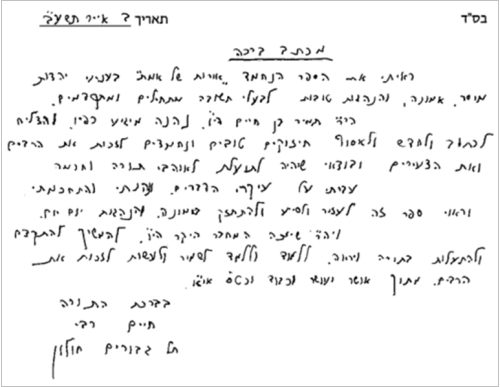 בס"ד
תאריך ב אייר תשע"ב
מכתב ברכה
ראיתי את הספר הנחמד "אורות של אמת" בעניני יהדות
מוסר, אמונה, והנהגות טובות לבעלי תשובה מתחילים ומתקדמים.
כיד תמיר בן חיים הי"ו. נהנה מיגיע כפיו, והצליח
לכתוב ולחדש ולאסוף חיזוקים טובים ונחמדים לזכות את הרבים
ואת הצעירים ובודאי שיהיה לתועלת לאוהבי תורה וחכמה
עברתי על עיקרי הדברים. נהנתי והתחכמתי
וראוי ספר זה לעזור ולסייע ולהתחזק באמונה, והנהגות יום יום.
ויה"ר שיזכה המחבר היקר הי"ו. להמשיך להתקדם
ולהתעלות בתורה ויראה. ללמוד וללמד לשמור ולעשות לזכות את
הרבים. מתוך אושר ועושר וכבוד וכט"ס אי"ו.
בברכת התורה
חיים רבי
תל גבורים חולון